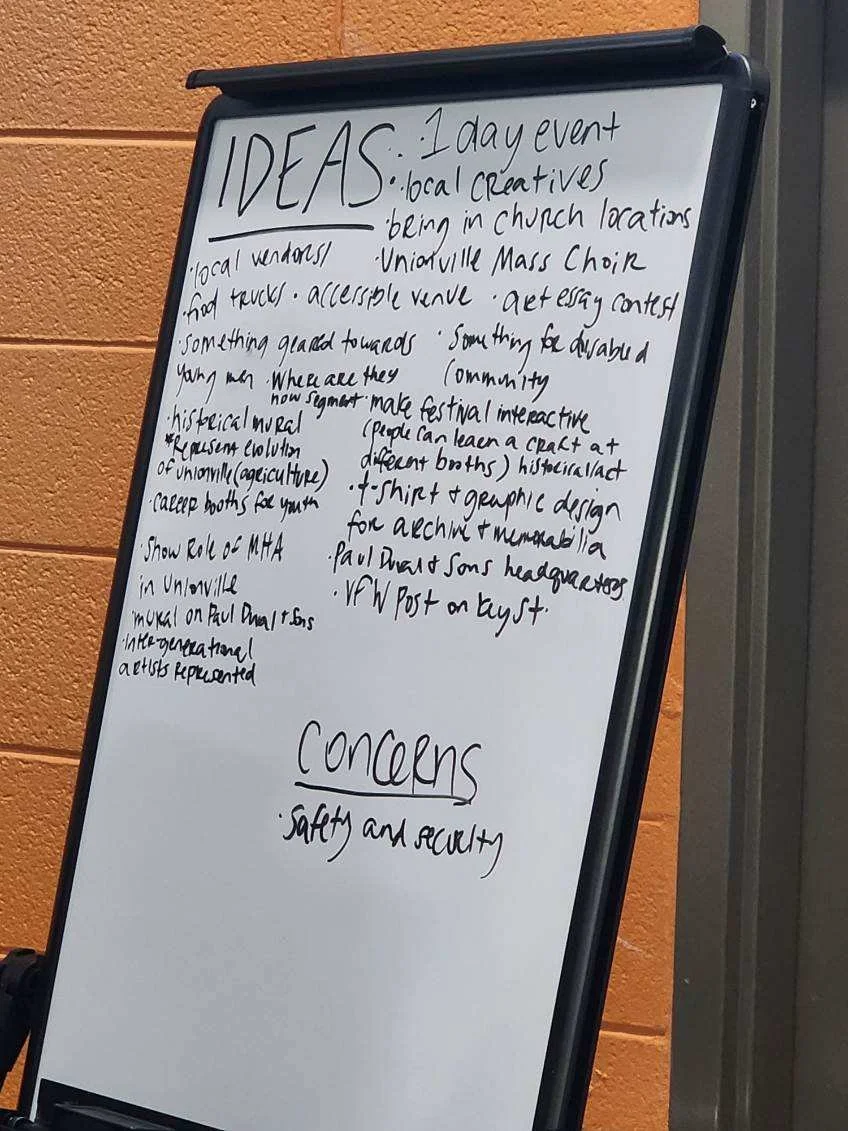 IDEAS: · 1 day event
· local creatives
· bring in church locations
· local vendors/ · Unionville Mass Choir
food trucks · accessible venue · art essay contest
· something geared towards · Something for disabled
young men · Where are they community
now segment · make festival interactive
· historical mural (people can learn a craft at
*Represent evolution different booths) historical/act
of Unionville (agriculture) · t-shirt + graphic design
· career booths for youth for archive + memorabilia
· Show Role of MHA · Paul Duval + Sons headquarters
in Unionville · VFW Post on Kay St.
mural on Paul Duval + Sons
· inter-generational
artists represented
CONCERNS
· Safety and security